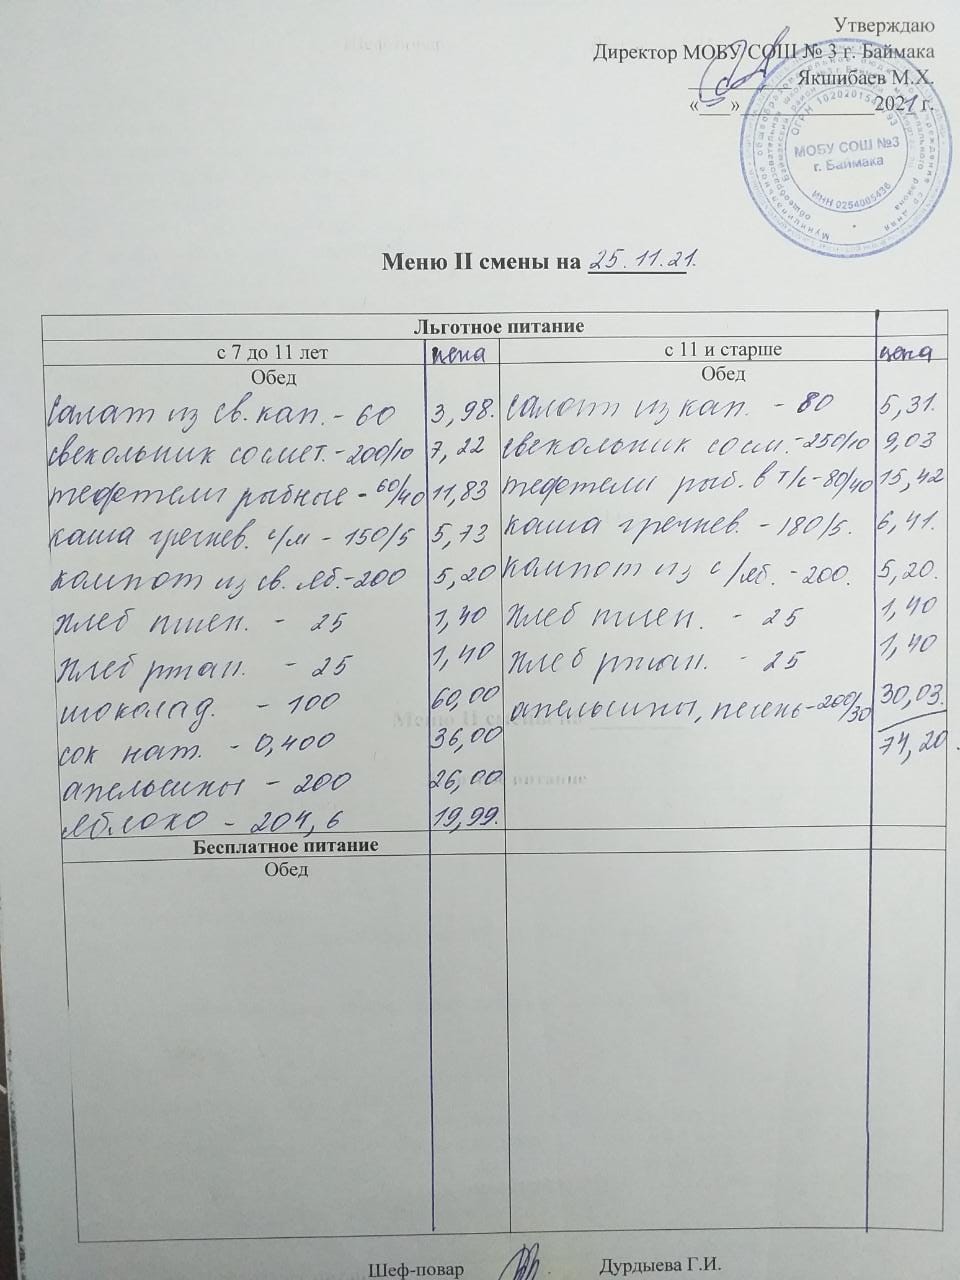 Утверждаю
Директор МОБУ СОШ № 3 г. Баймака
Якшибаев М.Х.
«___»______________2021 г.
ОГРН
МОБУ СОШ №3
г. Баймака
ИНН 0254005436
Меню II смены на 25.11.21.
Льготное питание
с 7 до 11 лет цена с 11 и старше цена
Обед Обед
Салат из св. кап. - 60 3,98. Салат из кап. - 80 5,31.
свекольник со смет. - 200/10 7,22 свекольник со см. - 250/10 9,03
тефтели рыбные - 60/40 11,83 тефтели рыб. в т/с - 80/40 15,42
каша гречнев. с/м - 150/5 5,73 каша гречнев. - 180/5. 6,41.
компот из св. яб. - 200 5,20 компот из с/яб. - 200. 5,20.
хлеб пшен. - 25 1,40 хлеб пшен. - 25 1,40
хлеб ржан. - 25 1,40 хлеб ржан. - 25 1,40
шоколад. - 100 60,00 апельсины, печень - 200/30 30,03.
сок нат. - 0,400 36,00 74,20.
апельсины - 200 26,00
яблоко - 204,6 19,99.
Бесплатное питание
Обед
Шеф-повар Дурдыева Г.И.